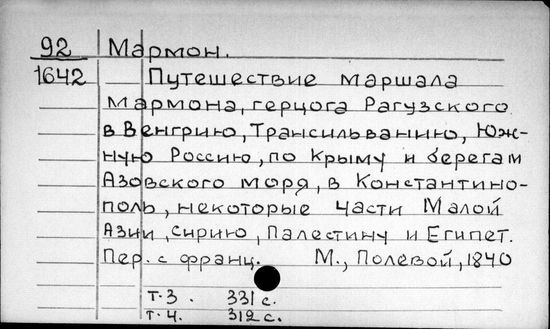 92 Мармон.
1642 Путешествие маршала
Мармона, герцога Рагузского
в Венгрию, Трансильванию, Юж-
ную Россию, по Крыму и берегам
Азовского моря, в Константино-
поль, некоторые части Малой
Азии, Сирию, Палестину и Египет.
Пер. с франц. М., Полевой, 1840
т. 3. 331 с.
т. 4. 312 с.